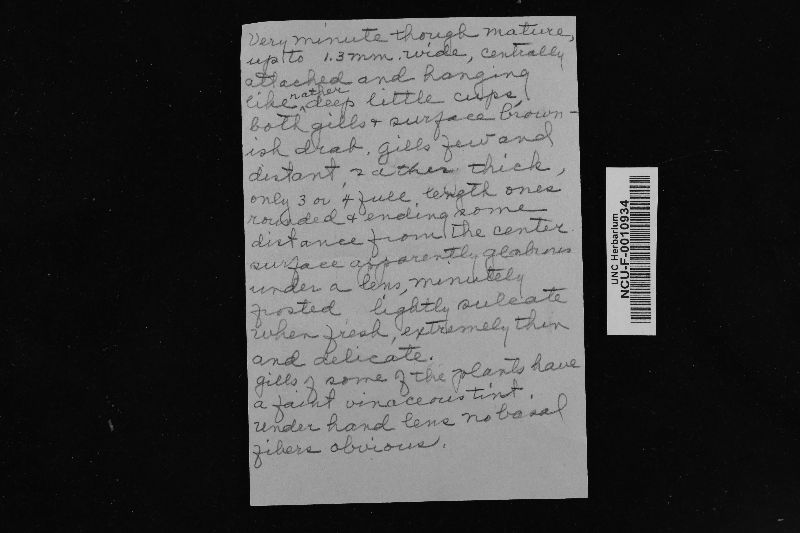 Very minute though mature,
up to 1.3 mm. wide, centrally
attached and hanging
like rather deep little cups,
both gills & surface brown-
ish drab. gills few and
distant, rather thick,
only 3 or 4 full length ones
rounded & ending some
distance from the center.
surface apparently glabrous
under a lens, minutely
frosted lightly sulcate
when fresh, extremely thin
and delicate.
gills of some of the plants have
a faint vinaceous tint.
under hand lens no basal
fibers obvious.
UNC Herbarium
NCU-F-0010934